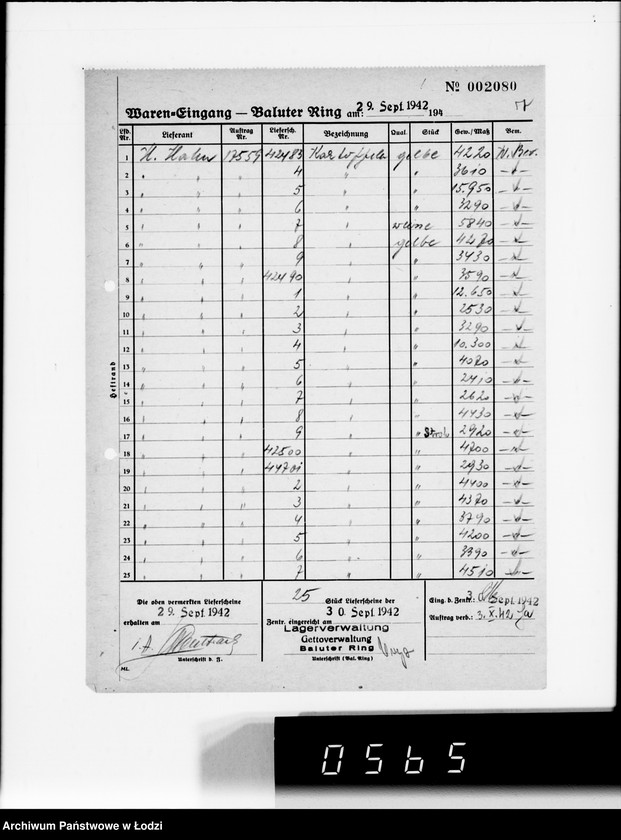 Nº 002080
Waren-Eingang — Baluter Ring am: 29. Sept. 1942 194
Lfd. Nr. Lieferant Auftrag Nr. Liefersch. Nr. Bezeichnung Qual. Stück Gew./Maß Bem.
1 H. Hahn 17559 42483 Kartoffeln gelbe 4220
2 " " 4 " " 3610 -"-
3 " " 5 " " 15.950 -"-
4 " " 6 " " 3290 -"-
5 " " 7 " " 5840 -"-
6 " " 8 " gelbe 4270 -"-
7 " " 9 " " 3430 -"-
8 " " 42490 " " 3590 -"-
9 " " 1 " " 12.650 -"-
10 " " 2 " " 2530 -"-
11 " " 3 " " 3290 -"-
12 " " 4 " " 10.300 -"-
13 " " 5 " " 4070 -"-
14 " " 6 " " 2410 -"-
15 " " 7 " " 2620 -"-
16 " " 8 " " 4430 -"-
17 " " 9 " " 2920 -"-
18 " " 42500 " " 4700 -"-
19 " " " " 2930 -"-
20 " " 2 " " 4400 -"-
21 " " 3 " " 4370 -"-
22 " " 4 " " 3790 -"-
23 " " 5 " " 4200 -"-
24 " " 6 " " 3390 -"-
25 " " 7 " " 4510 -"-
Heftrand
Die oben vermerkten Lieferscheine
29. Sept. 1942
erhalten am
i.A.
Unterschrift d. F.
ML.
25 Stück Lieferscheine der
30. Sept. 1942
Zentr. eingereicht am
Lagerverwaltung
Gettoverwaltung
Baluter Ring
Unterschrift (Bal. Ring)
Eing. d. Zentr.: 3. Sept. 1942
Auftrag verb.: 3.X.42
0565
Archiwum Państwowe w Łodzi